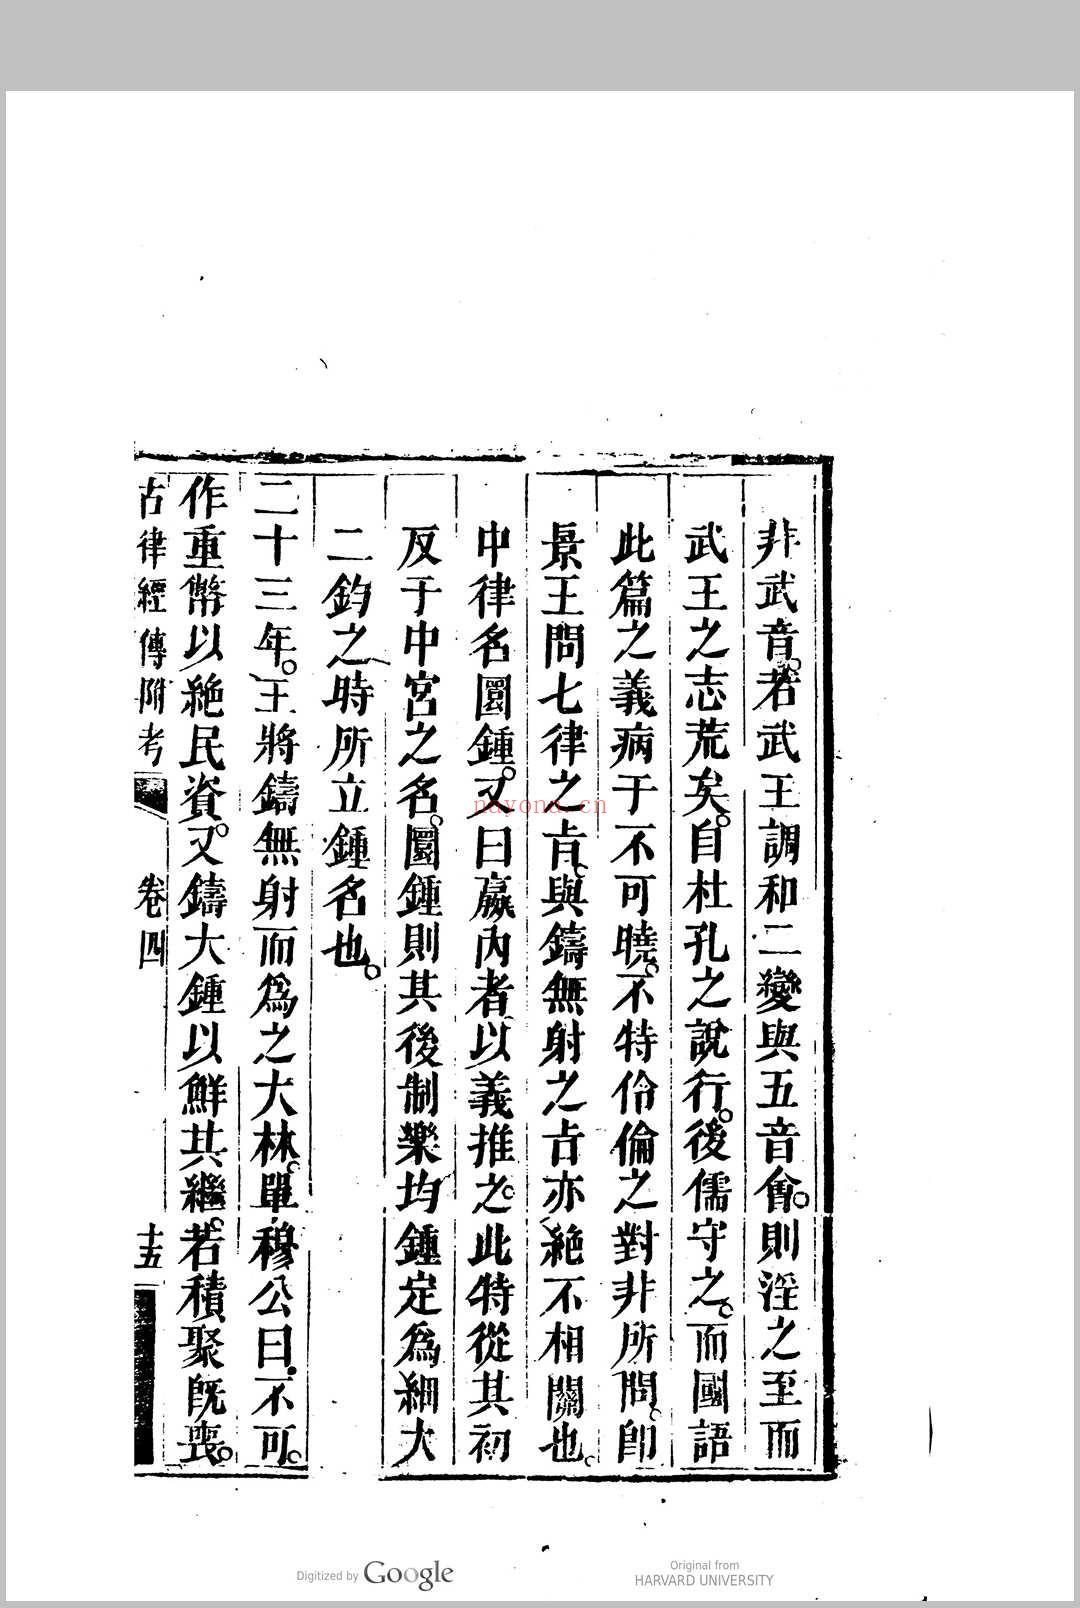 非武音。若武王調和二變與五音會。則淫之至而
武王之志荒矣。自杜孔之說行。後儒守之。而國語
此篇之義病于不可曉。不特伶倫之對非所問。卽
景王問七律之㫖。與鑄無射之㫖亦絶不相關也。
中律名圜鍾。又曰嬴內者。以義推之。此特從其初
反于中宮之名。圜鍾則其後制樂均鍾定爲細大
二鈞之時所立鍾名也。
二十三年。王將鑄無射而爲之大林。單穆公曰。不可。
作重幣以絶民資。又鑄大鍾以鮮其繼。若積聚旣喪。
古律經傳附考 卷四 十五
nayona.cn
Digitized by Google
Original from
HARVARD UNIVERSITY